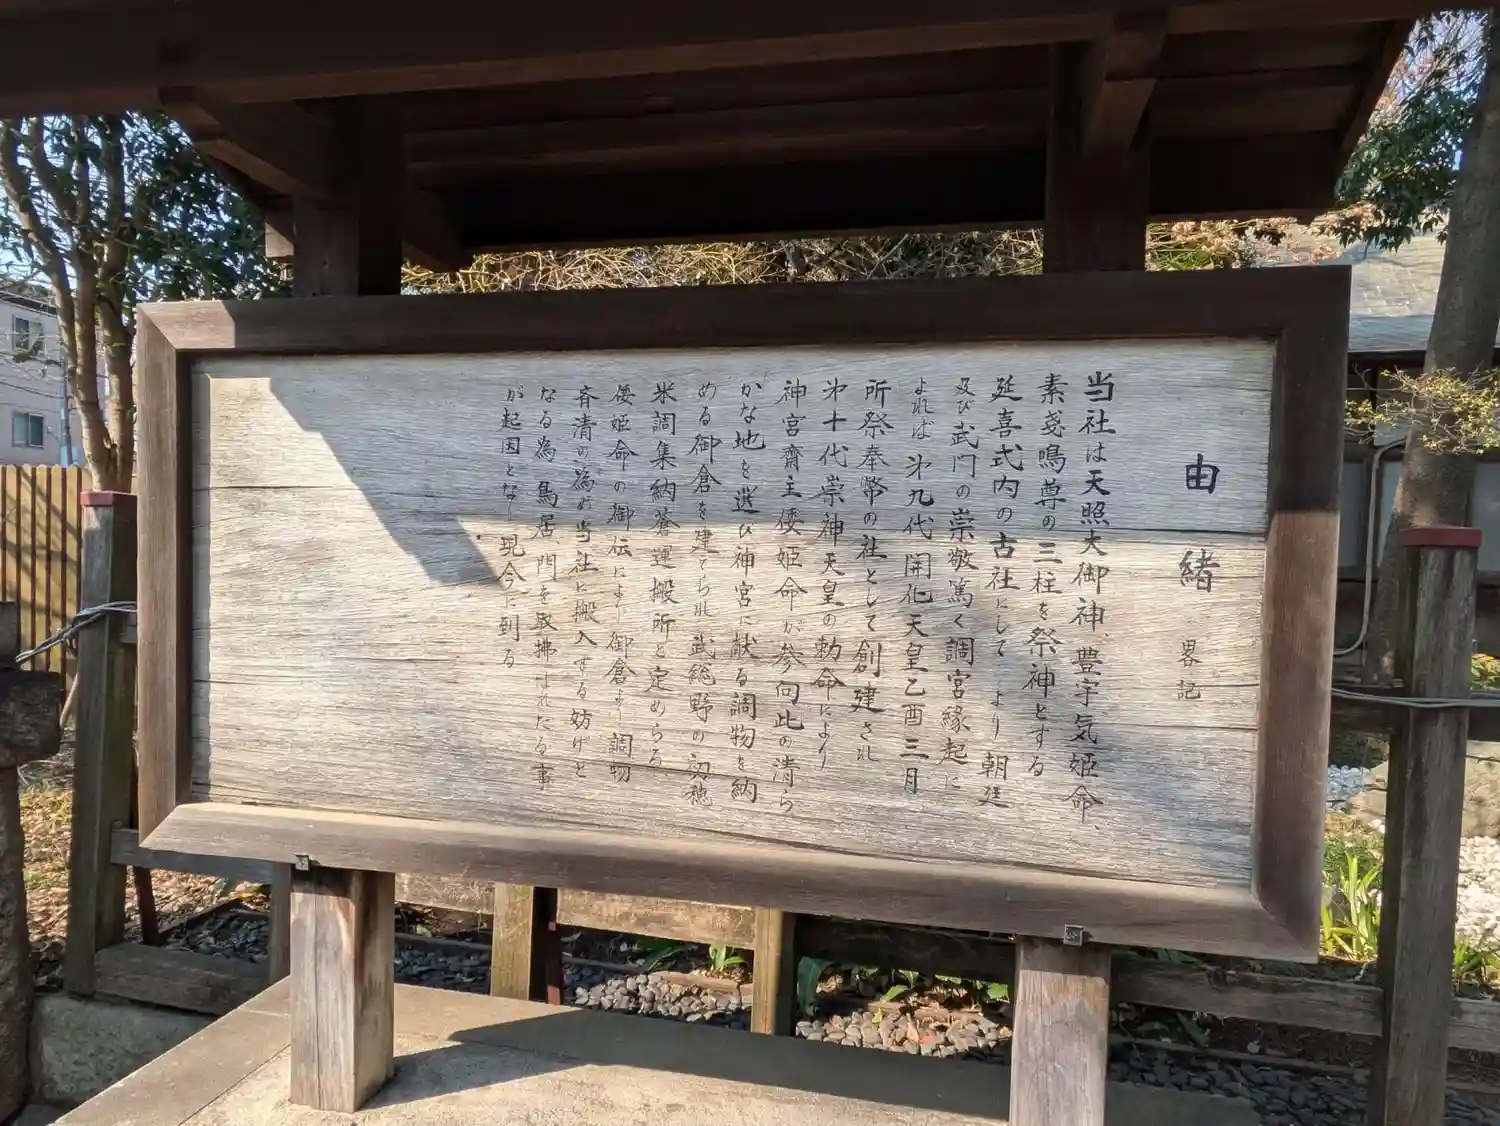 由緒 畧記
当社は天照大御神、豊宇気姫命、
素戔鳴尊の三柱を祭神とする
延喜式内の古社にして より朝廷
及び武門の崇敬篤く調宮縁起に
よれば 㐧九代開化天皇乙酉三月
所祭奉幣の社として創建され
㐧十代崇神天皇の勅命により
神宮齋主倭姫命が参向此の清ら
かな地を選び神宮に献る調物を納
める御倉を建てられ武総野の初穂
米調集納蒼運搬所と定めらる
倭姫命の御伝により御倉より調物
斉清の為め当社に搬入する妨げと
なる為 鳥居 門を取拂はれたる事
が起因となし現今に到る